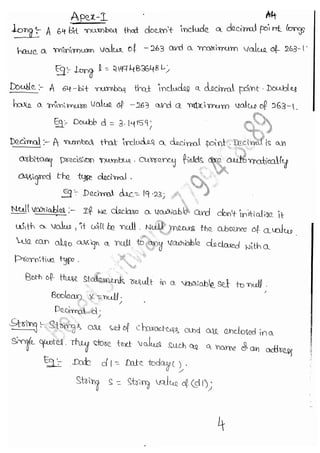 Apex-I
A4
Long:- A 64 bit number that doesn't include a decimal point. Longs
have a minimum value of -263 and a maximum value of 263-1.
Eg:- Long l = 2147483648L;
Double:- A 64-bit number that includes a decimal point. Doubles
have a minimum value of -263 and a maximum value of 263-1.
Eg:- Double d = 3.14159;
Decimal:- A number that includes a decimal point. Decimal is an
arbitary precision number. Currency fields are automatically
assigned the type decimal.
Eg:- Decimal dec = 19.23;
Null variables:- If we declare a variable and don't initialize it
with a value, it will be null. Null means the absence of a value.
We can also assign a null to any variable declared with a
Primitive type.
Both of these statements result in a variable set to null.
Boolean x = null;
Decimal d;
String:- Strings are set of characters and are enclosed in a
Single quotes. They store text values such as a name & an address
Eg:- Date d1 = Date today();
String s = String value of (d1);
4